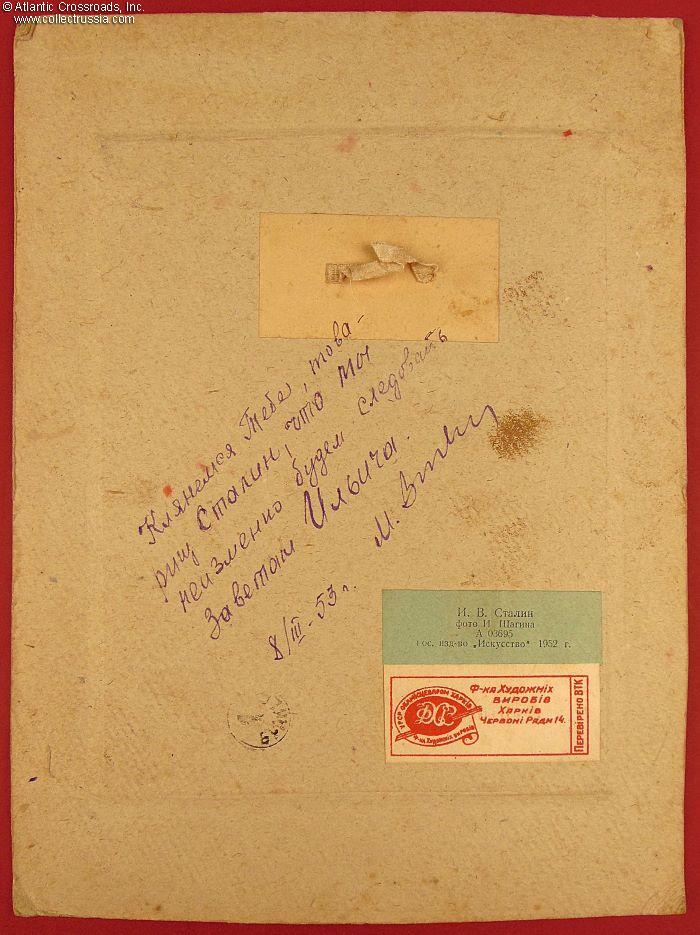 © Atlantic Crossroads, Inc.
www.collectrussia.com
Клянемся Тебе, това-
рищ Сталин, что мы
неизменно будем следовать
Заветам Ильича.
8/III-53 г. М.
И. В. Сталин
фото И Шагина
А 03695
Гос. изд-во „Искусство" 1952 г.
УРСР ОБЛМІСЦЕВПРОМ ХАРКІВ
ФХВ
Ф-ка Художніх виробів
Ф-ка Художніх
виробів
Харків
Червоні Ряди 14.
Перевірено ВТК